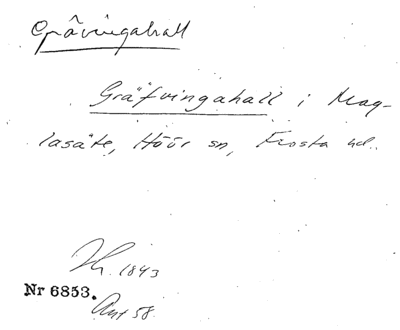 Grävingahall
Gräfvingahall i Mag-
lasäte, Höör sn, Frosta hd.
1843
Nr 6853.
Ant 58